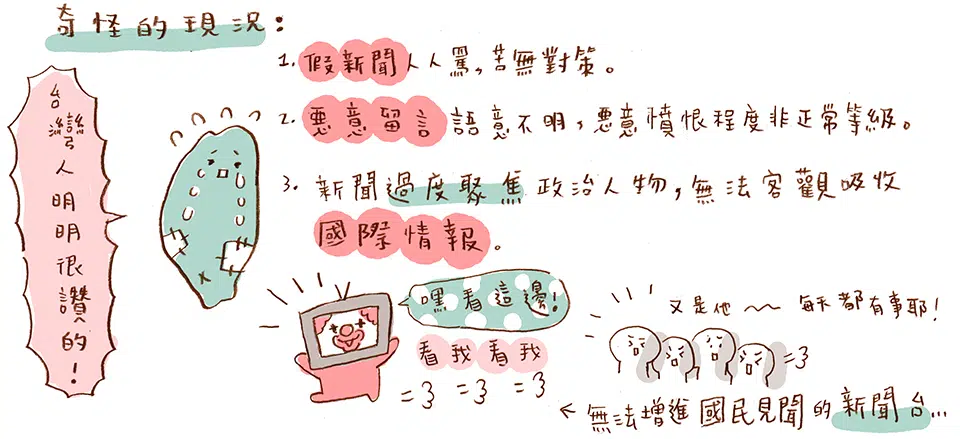 奇怪的現況：
台灣人明明很讚的！
1. 假新聞人人罵，苦無對策。
2. 惡意留言語意不明，惡意憤恨程度非正常等級。
3. 新聞過度聚焦政治人物，無法客觀吸收
國際情報。
嘿看這邊！
看我看我
又是他～～每天都有事耶！
← 無法增進國民見聞的新聞台...